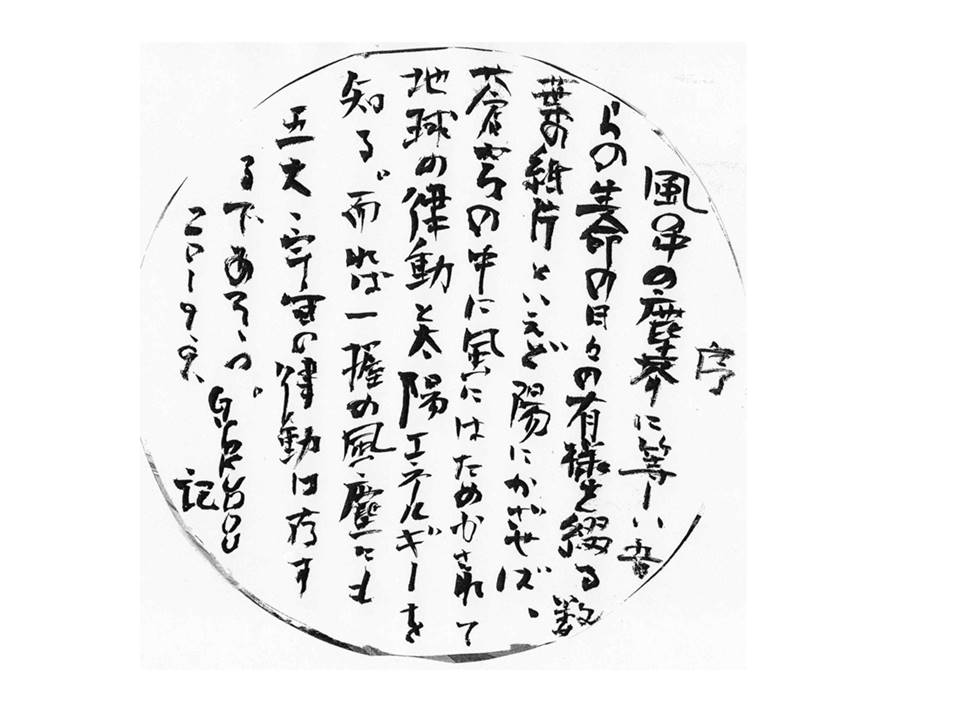 序
風の中の塵芥に等しい吾
らの生命の日々の有様を綴る数
葉の紙片といえど陽にかざせば、
蒼穹の中に風にはためかされて
地球の律動と太陽エネルギーを
知る。而れば一握の風塵にも
五大宇宙の律動は存す
るであろう。
二〇一九、
記